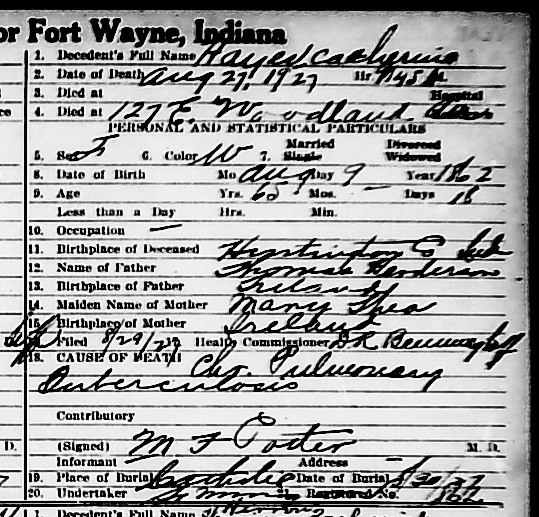 or Fort Wayne, Indiana
1. Decedent's Full Name Hayes Catherine
2. Date of Death Aug 27, 1927 Hr 9:45
3. Died at Hospital
4. Died at 127 E. Woodland
PERSONAL AND STATISTICAL PARTICULARS
Married Divorced
5. Sex F 6. Color W 7. Single Widowed
8. Date of Birth Mo Aug Day 9 Year 1862
9. Age Yrs. 65 Mos. — Days 18
Less than a Day Hrs. Min.
10. Occupation —
11. Birthplace of Deceased Huntington Co
12. Name of Father Thomas Henderson
13. Birthplace of Father Ireland
14. Maiden Name of Mother Mary Shea
15. Birthplace of Mother Ireland
Filed 8/29/27 Health Commissioner
18. CAUSE OF DEATH Chr. Pulmonary
Tuberculosis
Contributory
D. (Signed) M F Porter M. D.
Informant — Address —
19. Place of Burial Catholic Date of Burial 8/30/27
20. Undertaker Registered No. 862
1. Decedent's Full Name